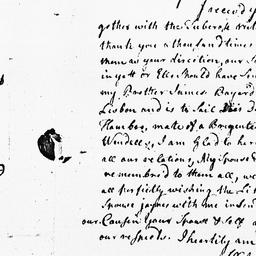 I recev'd y
gether with the Tuberose
thank you a thousand times
man as your direction, our
in y.tt or Else should have
my Brother James Bayard
Lisbon and is to Sail
mate of a Brigentin
I am Glad to hear
all our relations, My Spouse &
remember'd to them all, we
all perfectly wishing the
Spouse joynes with me
our Cousin Your Spouse & Self
our respects. I heartily am